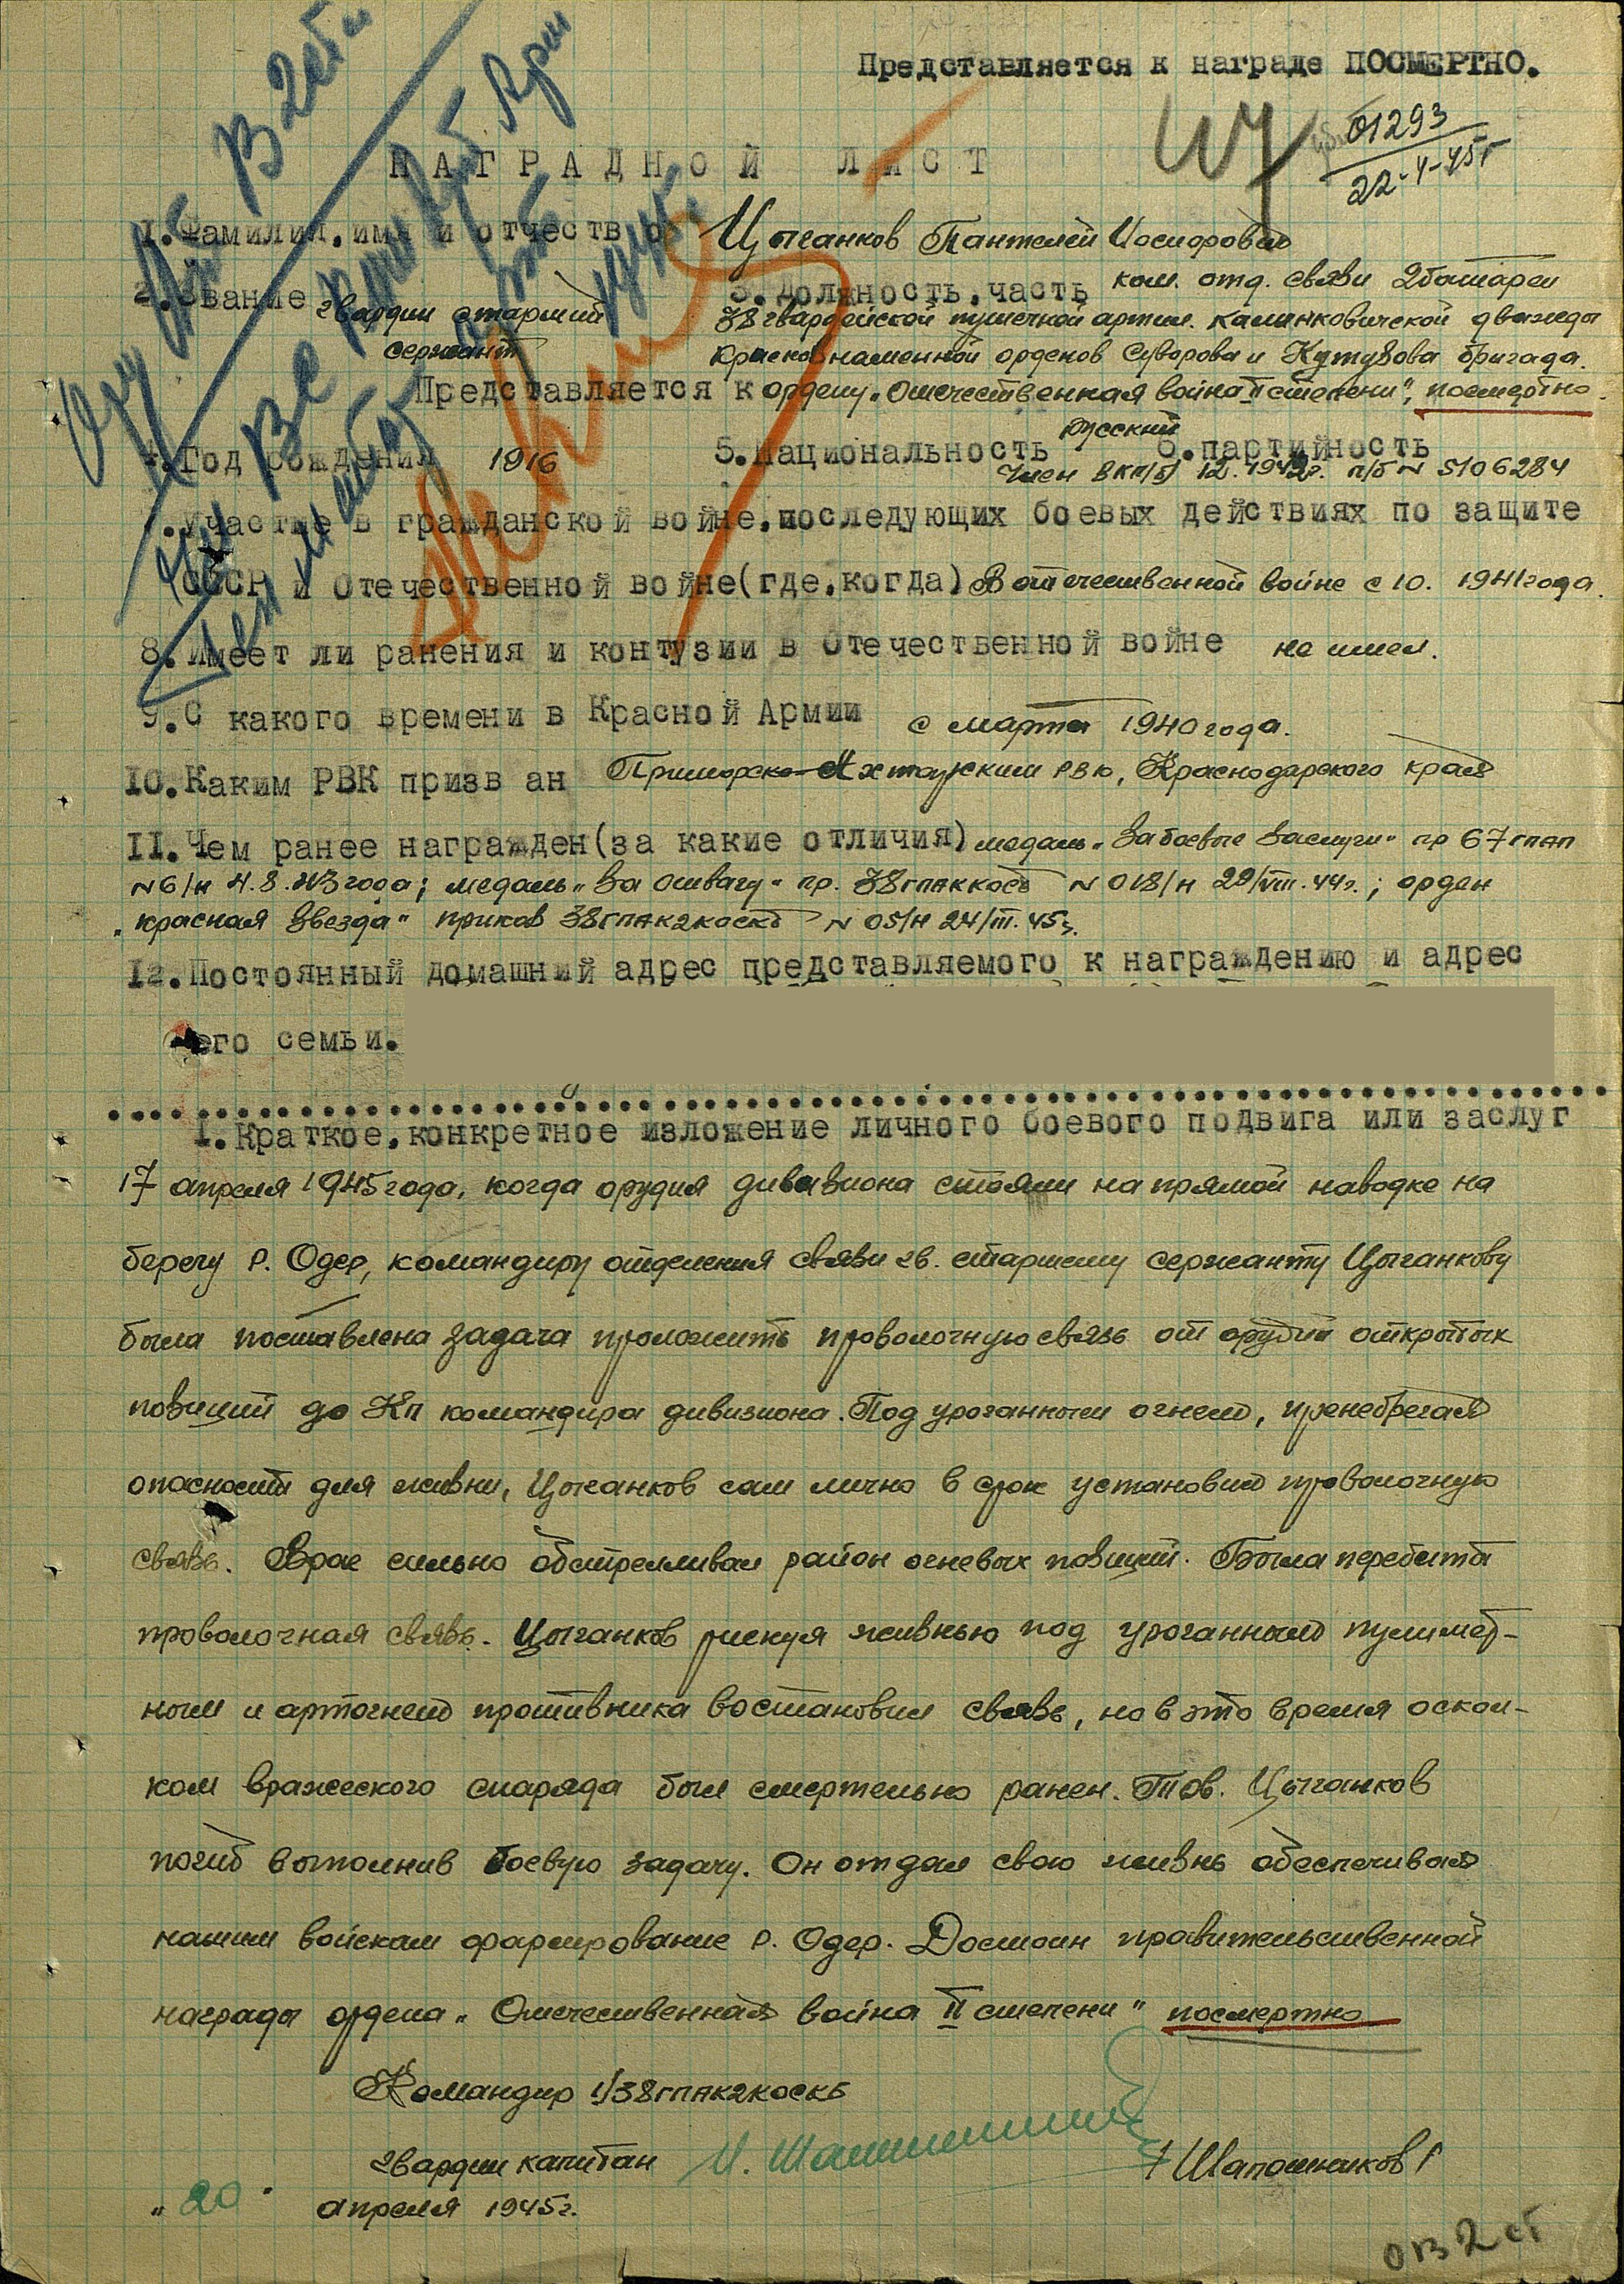 Представляется к награде ПОСМЕРТНО.
01293
22-4-45г
НАГРАДНОЙ ЛИСТ
1. Фамилия, имя и отчество Цыганков Пантелей Иосифович
2. Звание гвардии старший сержант
3. Должность, часть ком. отд. связи 2 батареи
38 гвардейской пушечной артил. Калинковичской дважды
Краснознаменной орденов Суворова и Кутузова бригада.
Представляется к ордену „Отечественная война II степени", посмертно.
4. Год рождения 1916 5. Национальность русский 6. партийность
Член ВКП/б/ 12. 1942г. п/б N 5106284
7. Участие в гражданской войне, последующих боевых действиях по защите
СССР и Отечественной войне (где, когда) В отечественной войне с 10. 1941 года.
8. Имеет ли ранения и контузии в Отечественной войне не имел.
9. С какого времени в Красной Армии с марта 1940 года.
10. Каким РВК призван Приморско-Ахтарским РВК, Краснодарского края
II. Чем ранее награжден (за какие отличия) медаль „За боевые заслуги" пр 67 гпап
N6/н 4.8.43 года; медаль „За отвагу" пр. 38 гпаккосб N 018/н 29/VIII.44г.; орден
„Красная Звезда" приказ 38 гпак2коскб N 05/н 24/III.45г.
12. Постоянный домашний адрес представляемого к награждению и адрес
его семьи.
I. Краткое, конкретное изложение личного боевого подвига или заслуг
17 апреля 1945 года, когда орудия дивизиона стояли на прямой наводке на
берегу р. Одер, командиру отделения связи гв. старшему сержанту Цыганкову
была поставлена задача проложить проволочную связь от орудий открытых
позиций до КП командира дивизиона. Под ураганным огнем, пренебрегая
опасности для жизни, Цыганков сам лично в срок установил проволочную
связь. Враг сильно обстреливал район огневых позиций. Была перебита
проволочная связь. Цыганков рискуя жизнью под ураганным пулимет-
ным и артогнем противника востановил связь, но в это время оскол-
ком вражеского снаряда был смертельно ранен. Тов. Цыганков
погиб выполнив боевую задачу. Он отдал свою жизнь обеспечивая
нашим войскам форсирование р. Одер. Достоин правительственной
награды ордена „Отечественная война II степени" посмертно
Командир 1/38 гпак2коскб
гвардии капитан /Шапошников/
„20" апреля 1945г.
ов 2 ст